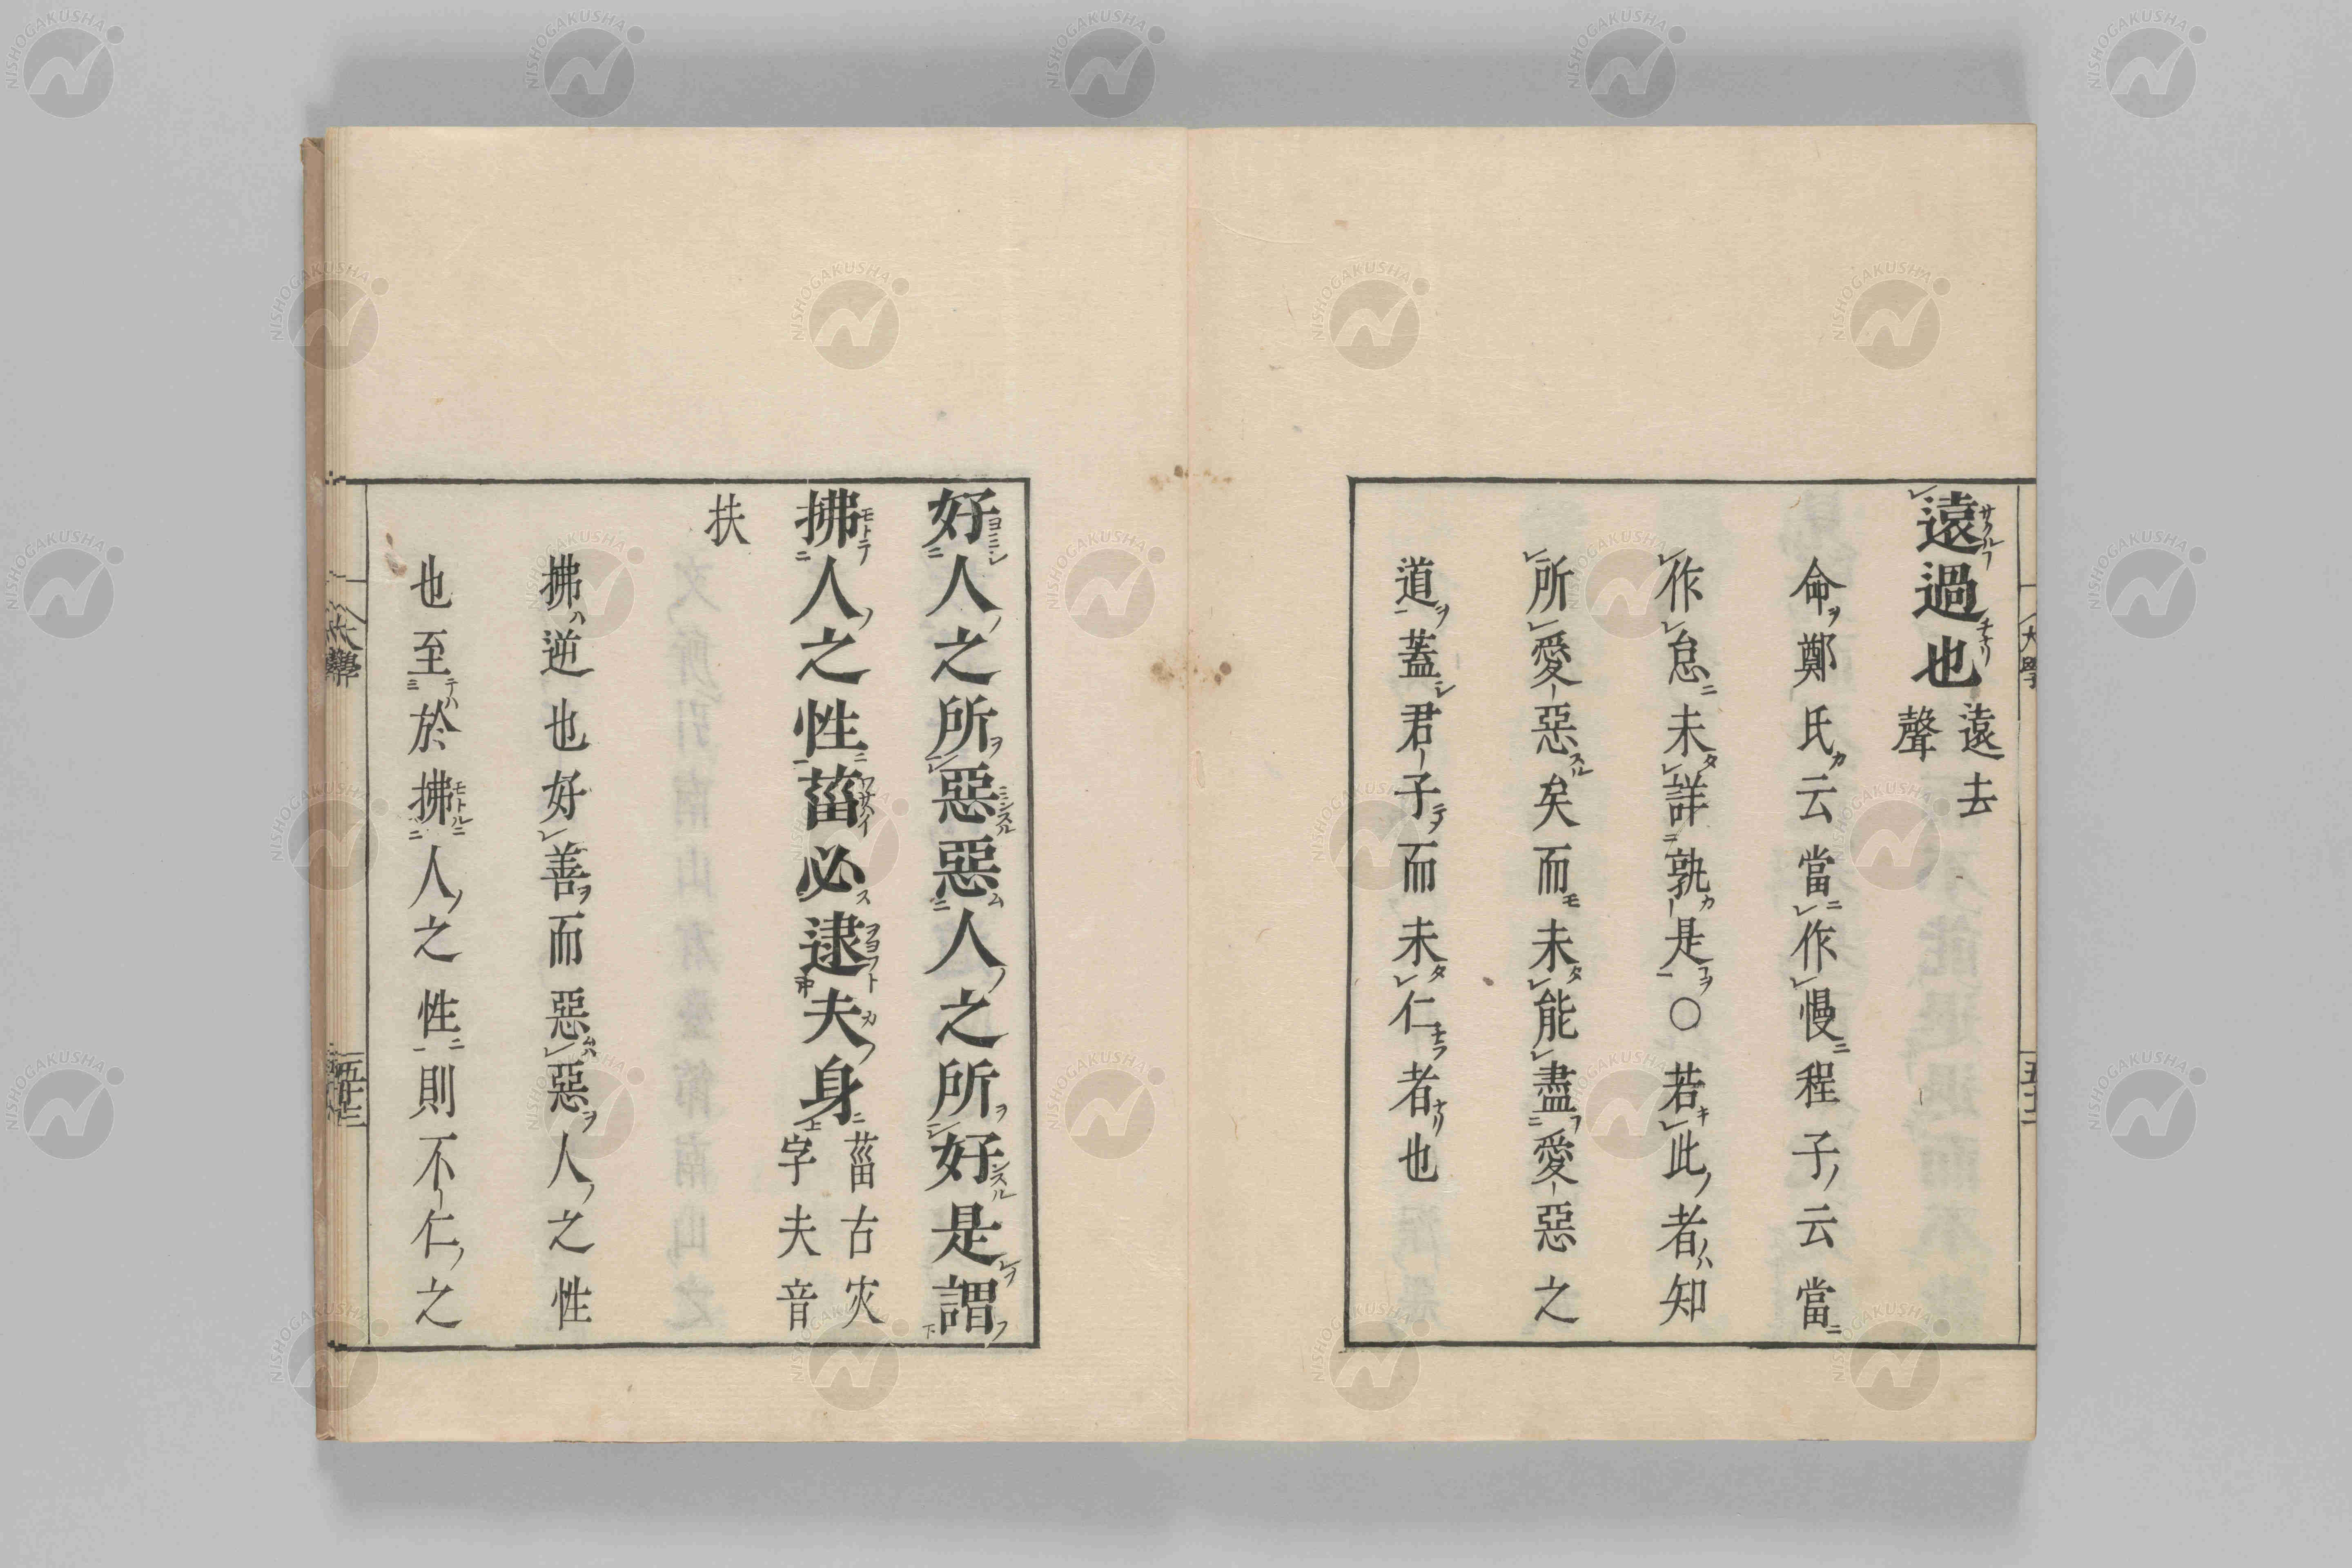 遠過也 遠去聲
命鄭氏云當作慢程子云當
作怠未詳孰是○若此者知
所愛惡矣而未能盡愛惡之
道蓋君子而未仁者也
好人之所惡惡人之所好是謂
拂人之性菑必逮夫身 菑古灾字夫音
扶
拂逆也好善而惡惡人之性
也至於拂人之性則不仁之
大學
五十三
NISHOGAKUSHA